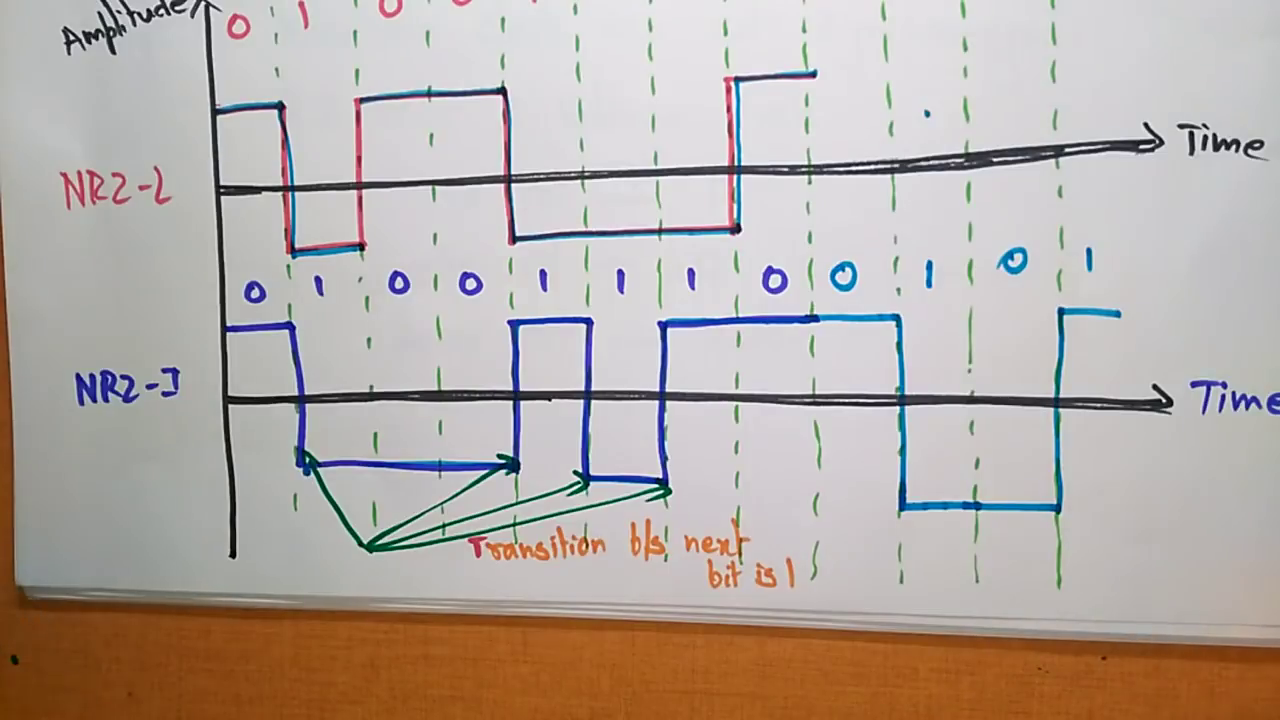 Amplitude
0 1 0
NRZ-L
Time
0 1 0 0 1 1 1 0 0 1 0 1
NRZ-I
Time
Transition b/s next
bit is 1